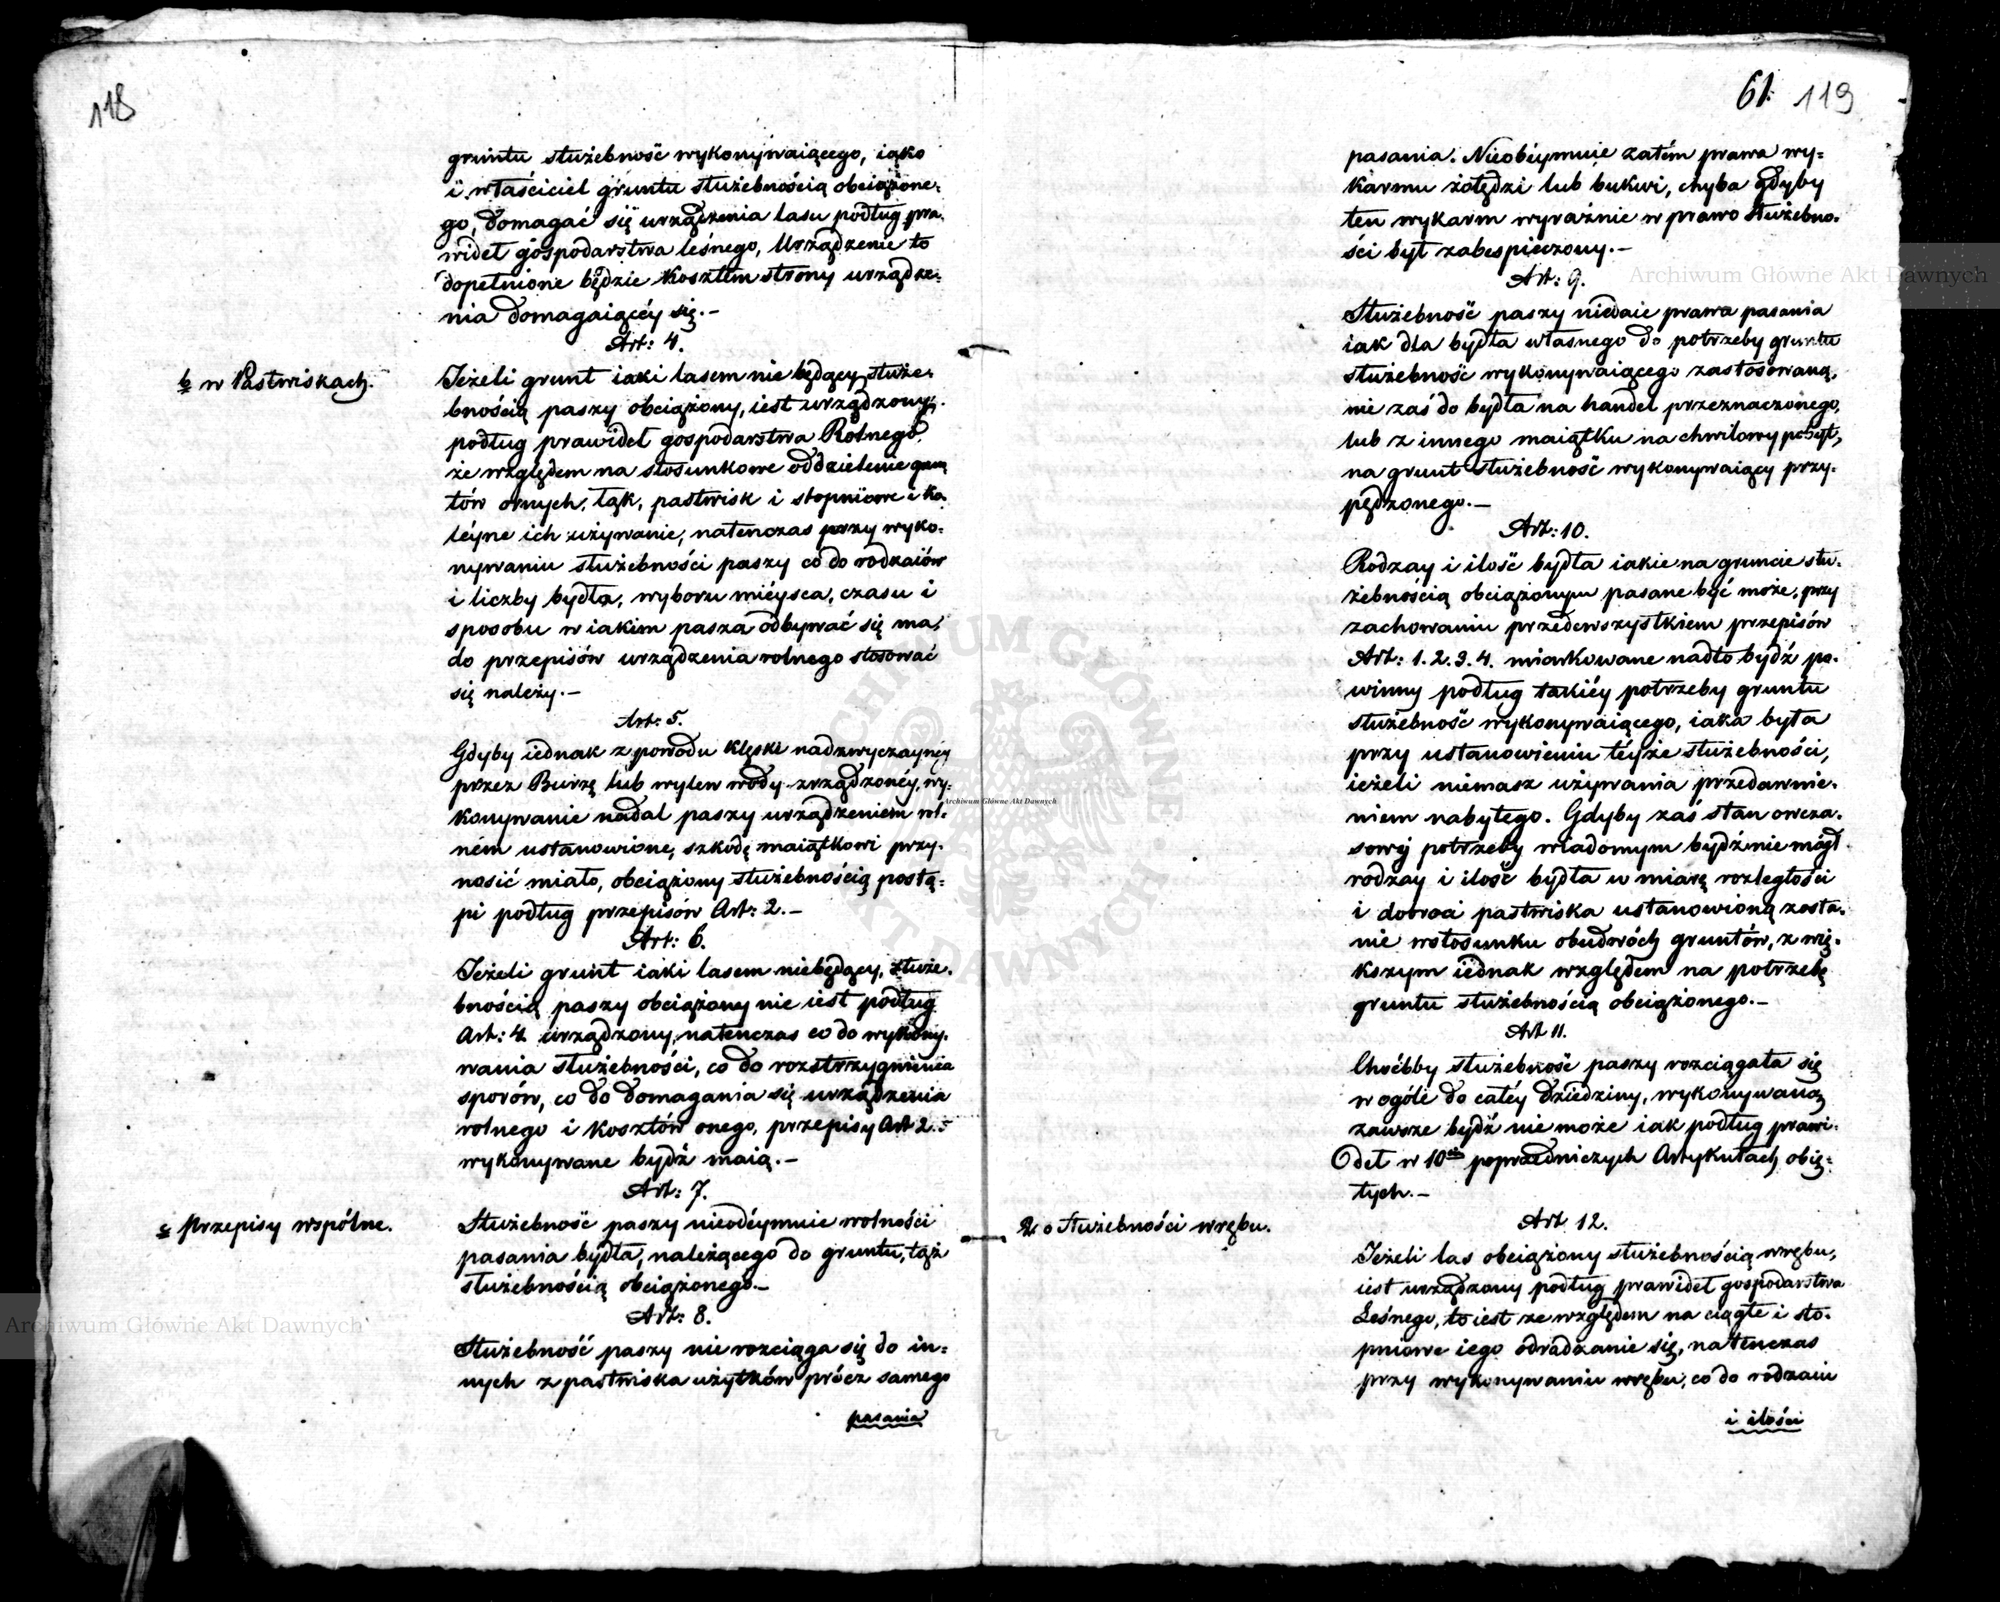 118
gruntu służebność wykonywaiącego, iako
i właściciel gruntu służebnością obciążone=
go, domagać się urządzenia lasu podług pra=
wideł gospodarstwa leśnego, Urządzenie to
dopełnione będzie kosztem strony urządze=
nia domagaiącéy się.–
Art: 4.
b w Pastwiskach.
Jeżeli grunt iaki lasem nie będący służe=
bnością paszy obciążony, iest urządzony
podług prawideł gospodarstwa Rolnego,
ze względem na stosunkowe oddzielenie grun
tów ornych, łąk, pastwisk i stopniowe i ko=
léyne ich używanie, natenczas przy wyko=
nywaniu służebności paszy co do rodzaiów
i liczby bydła, wyboru mieysca, czasu i
sposobu w iakim pasza odbywać się ma,
do przepisów urządzenia rolnego stosować
się należy.–
Art: 5.
Gdyby iednak z powodu klęski nadzwyczaynéy
przez Burzę lub wylew wody zrządzonéy, wy=
konywanie nadal paszy urządzeniem rol=
ném ustanowione, szkodę maiątkowi przy=
nosić miało, obciążony służebnością postą=
pi podług przepisów Art: 2.–
Art: 6.
Jeżeli grunt iaki lasem niebędący, służe=
bnością paszy obciążony nie iest podług
Art: 4 urządzony, natenczas co do wykony=
wania służebności, co do rozstrzygnienia
sporów, co do domagania się urządzenia
rolnego i kosztów onego, przepisy Art 2.
wykonywane bydź maią.–
Art: 7.
c Przepisy wspólne.
Służebność paszy nieodéymuie wolności
pasania bydła, należącego do gruntu, tąż
służebnością obciążonego.–
Art: 8.
Służebność paszy nie rozciąga się do in=
nych z pastwiska użytków prócz samego
pasania
61. 119
pasania. Nieobéymuie zatém prawa wy=
karmu żołędzi lub bukwi, chyba gdyby
ten wykarm wyraźnie w prawo służebno=
ści był zabespieczony.–
Art: 9.
Służebność paszy niedaie prawa pasania
iak dla bydła własnego do potrzeby gruntu
służebność wykonywaiącego zastosowaną,
nie zaś do bydła na handel przeznaczonego,
lub z innego maiątku na chwilowy pobyt,
na grunt służebność wykonywaiący przy=
pędzonego.–
Art: 10.
Rodzay i ilość bydła iakie na gruncie słu=
żebnością obciążonym pasane być może, przy
zachowaniu przedewszystkiem przepisów
Art: 1. 2. 3. 4. miarkowane nadto bydź po=
winny podług takiéy potrzeby gruntu
służebność wykonywaiącego, iaka była
przy ustanowieniu téyże służebności,
ieżeli niemasz używania przedawnie=
niem nabytego. Gdyby zaś stan owcza=
sowéj potrzeby wiadomym bydź nie mógł
rodzay i ilość bydła w miarę rozległości
i dobroci pastwiska ustanowioną zosta=
nie w stosunku obudwóch gruntów, z wię=
kszym iednak względem na potrzebę
gruntu służebnością obciążonego.–
Art 11.
Choćbby służebność paszy rozciągała się
w ogóle do całéy dziedziny, wykonywaną
zawsze bydź nie może iak podług prawi=
deł w 10ciu poprzedniczych Artykułach obię=
tych.–
Art 12.
2o Służebności wrębu.
Jeżeli las obciążony służebnością wrębu,
iest urządzony podług prawideł gospodarstwa
Leśnego, to iest ze względem na ciągłe i sto=
pniowe iego odradzanie się, natenczas
przy wykonywaniu wrębu, co do rodzaiu
i ilości
Archiwum Główne Akt Dawnych
Archiwum Główne Akt Dawnych
Archiwum Główne Akt Dawnych
ARCHIWUM GŁÓWNE AKT DAWNYCH